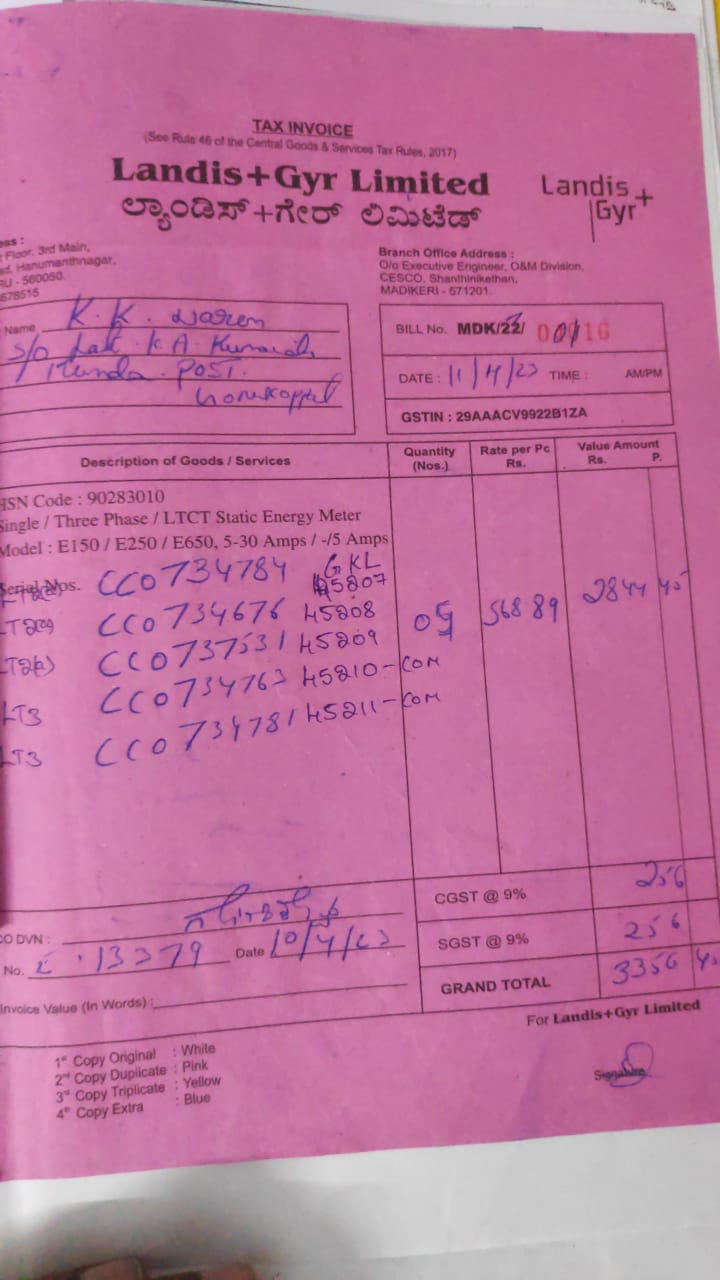 TAX INVOICE
(See Rule 46 of the Central Goods & Services Tax Rules, 2017)
Landis+Gyr Limited
ಲ್ಯಾಂಡಿಸ್+ಗೇರ್ ಲಿಮಿಟೆಡ್
Landis+
Gyr
ess :
Floor, 3rd Main,
Hanumanthnagar,
RU - 560050.
678515
Branch Office Address :
O/o Executive Engineer, O&M Division,
CESCO, Shanthinikethan,
MADIKERI - 571201.
Name K. K. Naren
S/o Late K. A.
POST.
BILL No. MDK/23/
DATE : 11/4/23 TIME : AM/PM
GSTIN : 29AAACV9922B1ZA
Description of Goods / Services
Quantity (Nos.)
Rate per Pc Rs.
Value Amount Rs. P.
HSN Code : 90283010
Single / Three Phase / LTCT Static Energy Meter
Model : E150 / E250 / E650, 5-30 Amps / -/5 Amps
Serial Nos. CC0734784 GKL 45207
CC0734676 45208
CC0737531 45209
LT3 CC0734763 45210-COM
LT3 CC0734781 45211-COM
05 568 89 2844 45
CGST @ 9% 256
SGST @ 9% 256
GRAND TOTAL 3356 45
O DVN :
No. 13379 Date 10/4/23
Invoice Value (In Words) :
For Landis+Gyr Limited
Signature
1st Copy Original : White
2nd Copy Duplicate : Pink
3rd Copy Triplicate : Yellow
4th Copy Extra : Blue